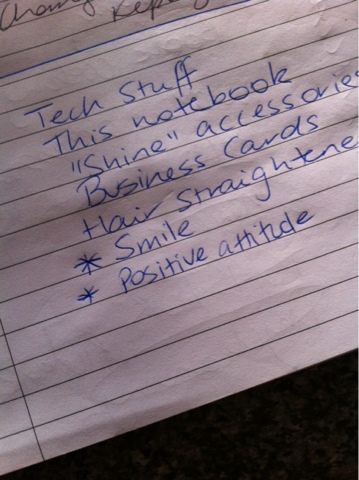 Tech Stuff
This notebook
"Shine" accessorie
Business Cards
Hair Straightene
* Smile
* Positive attitude